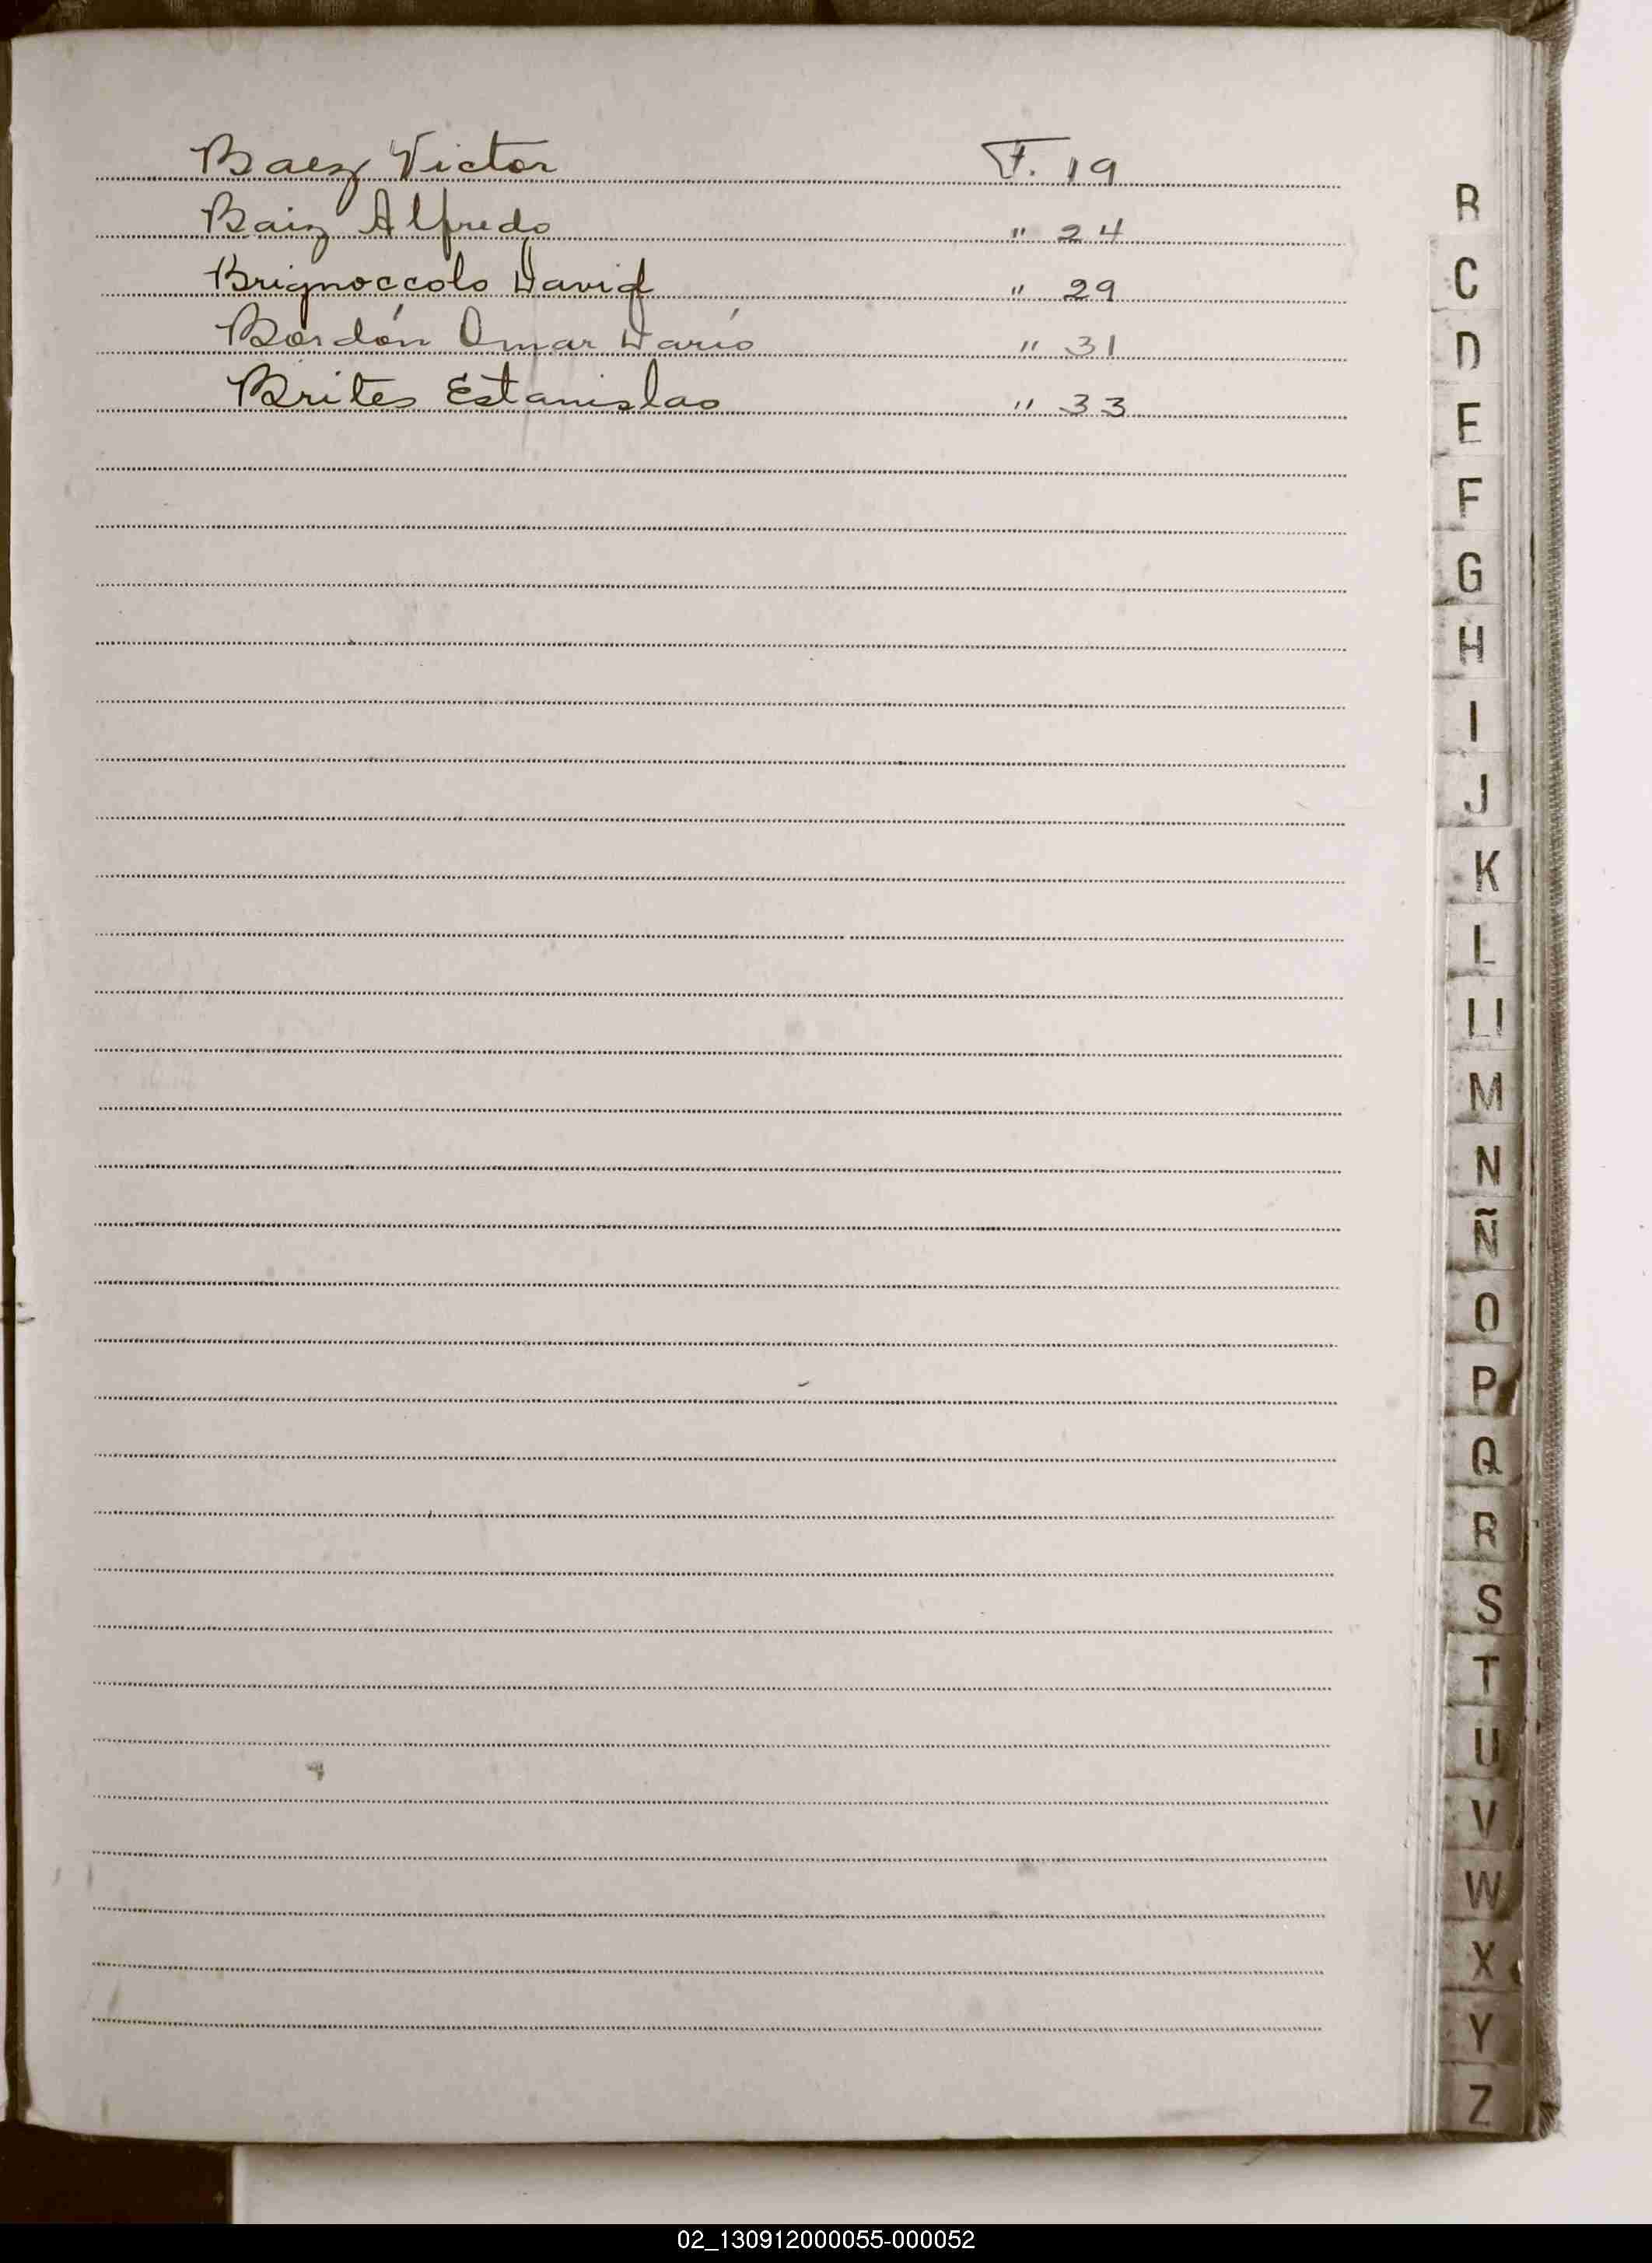 Baez Victor F. 19
Baiz Alfredo " 24
Brignoccolo David " 29
Bordón Omar Darío " 31
Brites Estanislao " 33
B
C
D
E
F
G
H
I
J
K
L
Ll
M
N
Ñ
O
P
Q
R
S
T
U
V
W
X
Y
Z
02_130912000055-000052